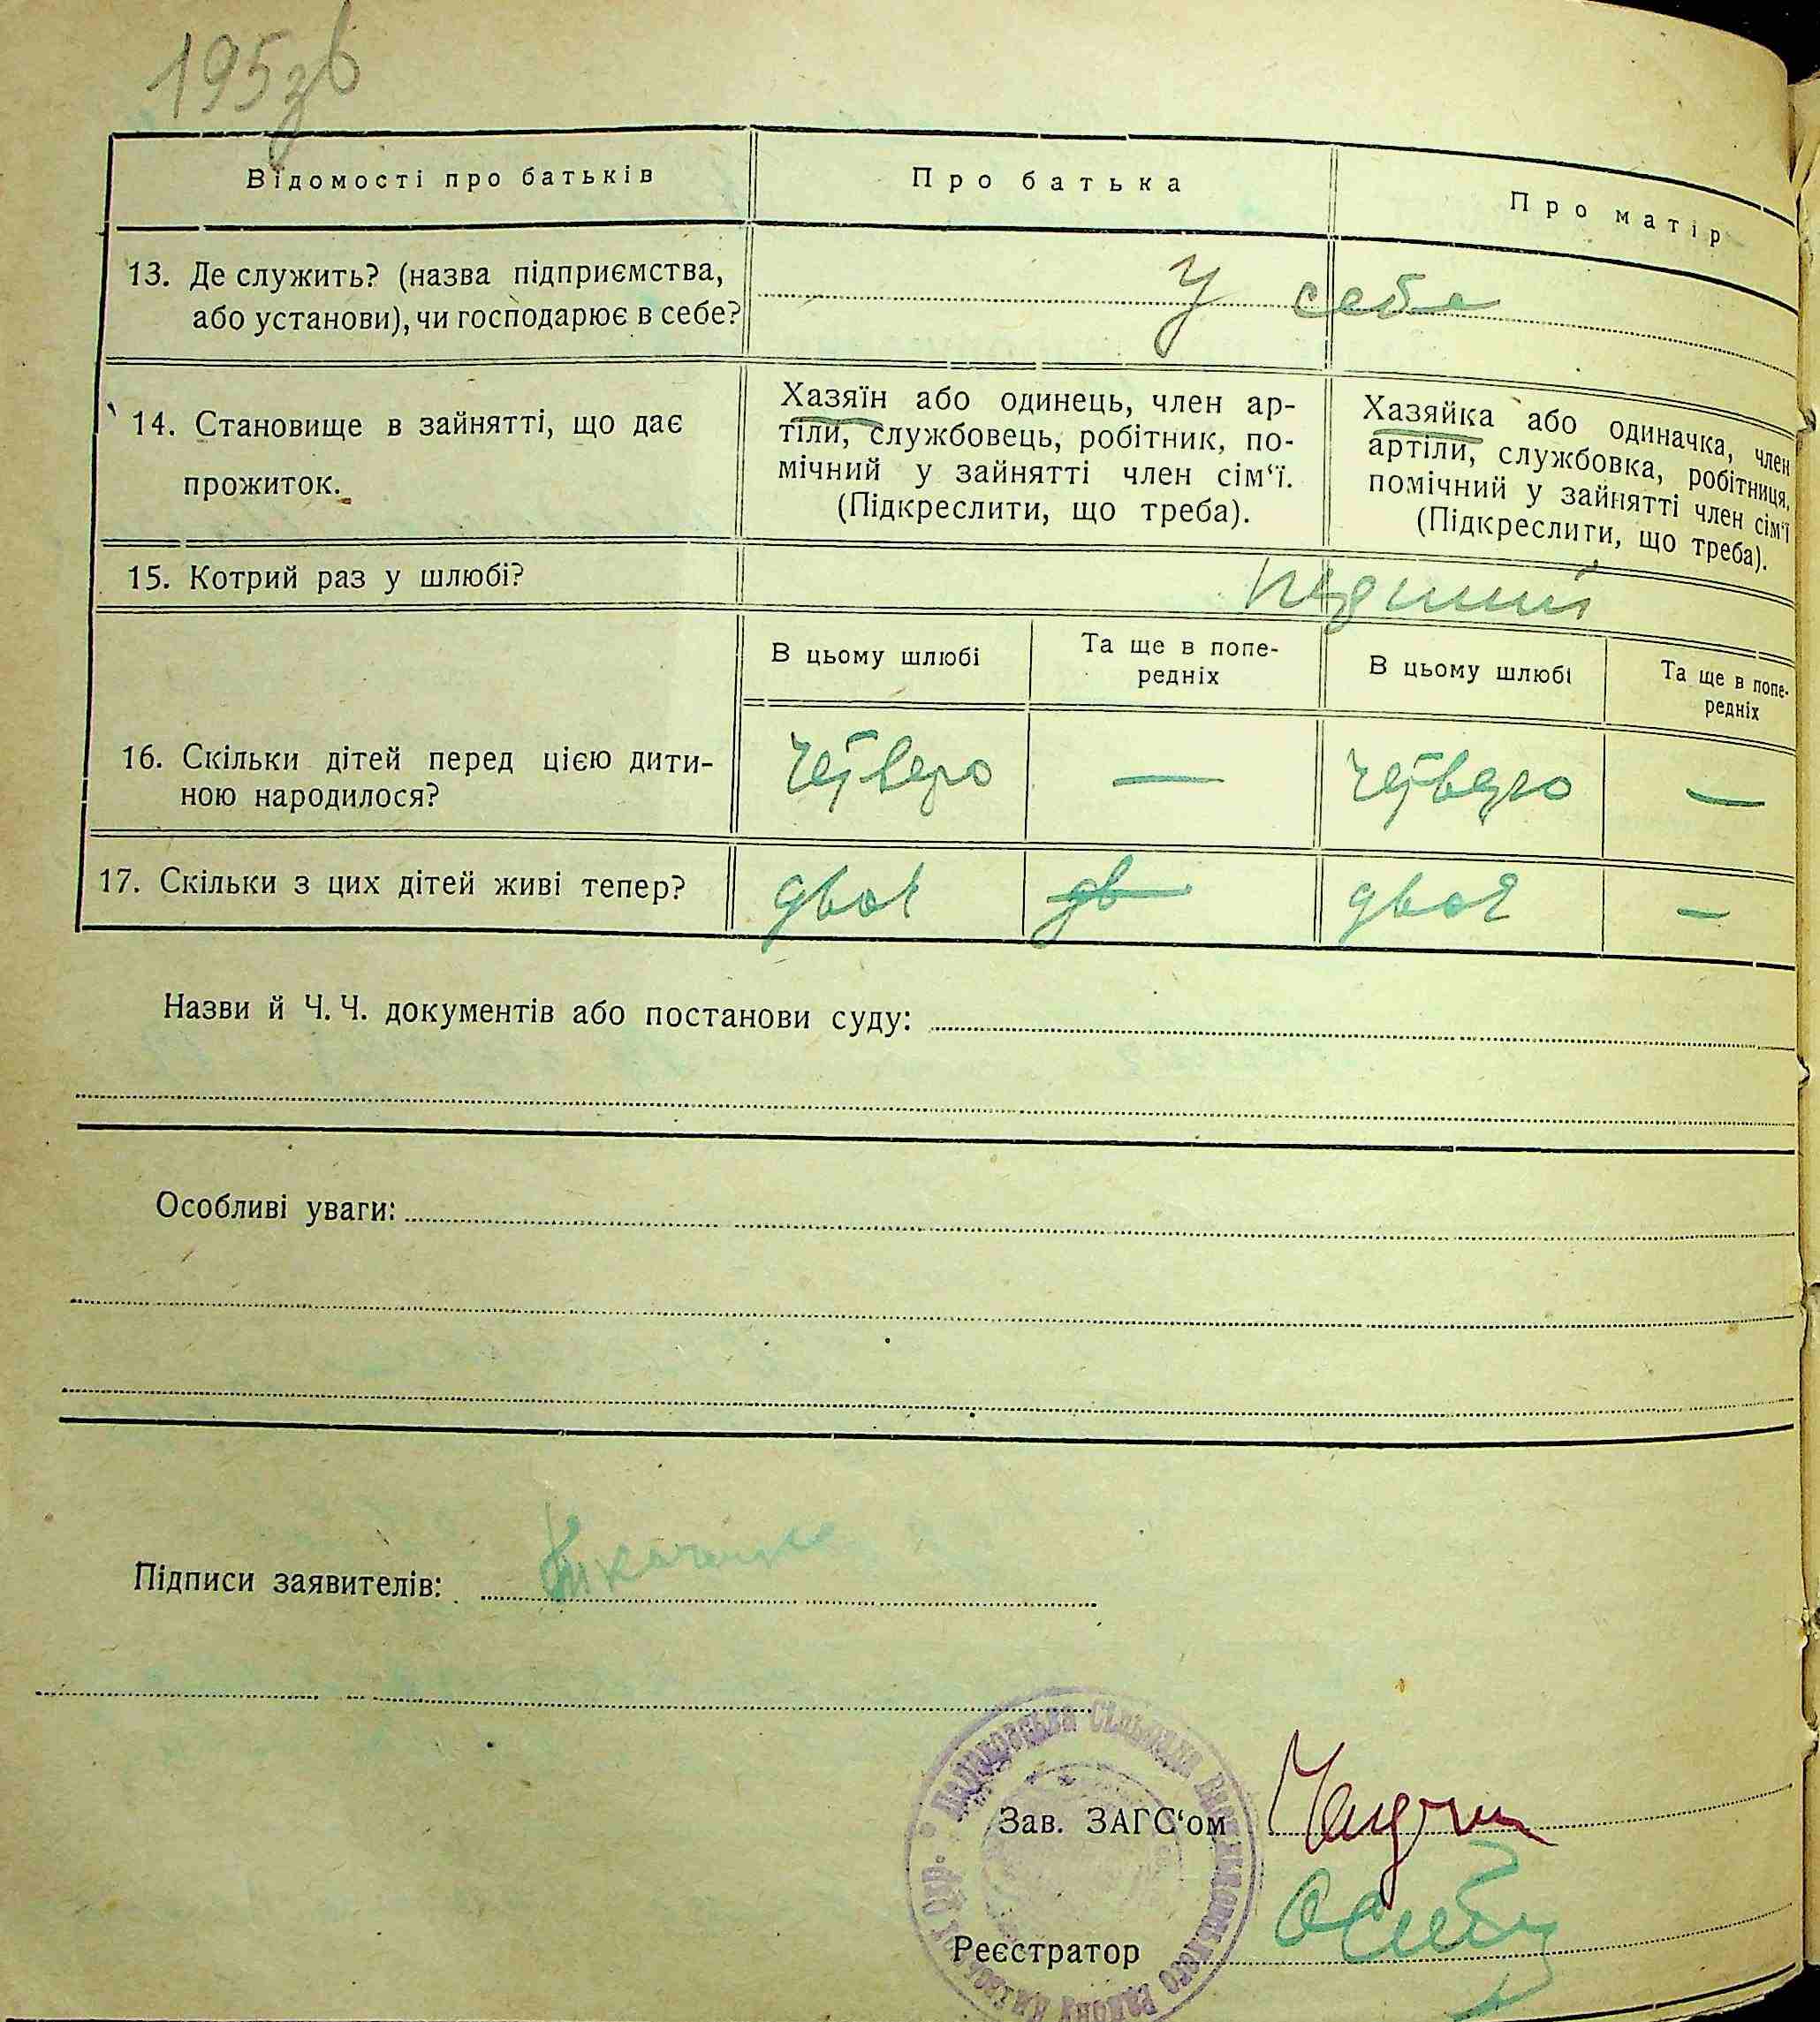 195зв
Відомості про батьків
Про батька
Про матір
13. Де служить? (назва підприємства,
або установи), чи господарює в себе?
У себе
14. Становище в зайнятті, що дає
прожиток.
Хазяїн або одинець, член ар-
тіли, службовець, робітник, по-
мічний у зайнятті член сім‘ї.
(Підкреслити, що треба).
Хазяйка або одиначка, член
артіли, службовка, робітниця,
помічний у зайнятті член сім‘ї
(Підкреслити, що треба).
15. Котрий раз у шлюбі?
В цьому шлюбі
Та ще в попе-
редніх
В цьому шлюбі
Та ще в попе-
редніх
16. Скільки дітей перед цією дити-
ною народилося?
четверо
—
четверо
—
17. Скільки з цих дітей живі тепер?
двоє
дв
двоє
—
Назви й Ч. Ч. документів або постанови суду:
Особливі уваги:
Підписи заявителів:
Зав. ЗАГС‘ом
Реєстратор